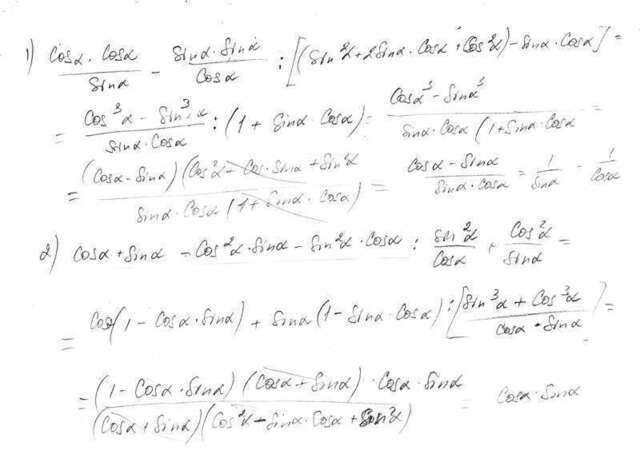 1) (Cosα · Cosα)/Sinα − (Sinα · Sinα)/Cosα : [(Sin²α + 2Sinα · Cosα + Cos²α) − Sinα · Cosα] =
= (Cos³α − Sin³α)/(Sinα · Cosα) : (1 + Sinα · Cosα) = (Cosα³ − Sinα³)/(Sinα · Cosα (1 + Sinα · Cosα =
= (Cosα − Sinα)(Cos²α − Cos · Sinα + Sin²α)/(Sinα · Cosα (1 + Sinα · Cosα) = (Cosα − Sinα)/(Sinα · Cosα) = 1/Sinα − 1/Cosα
2) Cosα + Sinα − Cos²α · Sinα − Sin²α · Cosα : Sin²α/Cosα + Cos²α/Sinα =
= Cosα(1 − Cosα · Sinα) + Sinα(1 − Sinα · Cosα) : [(Sin³α + Cos³α)/(Cosα · Sinα)] =
= (1 − Cosα · Sinα)(Cosα + Sinα) · Cosα · Sinα/((Cosα + Sinα)(Cos²α − Sinα · Cosα + Sin²α) = Cosα · Sinα